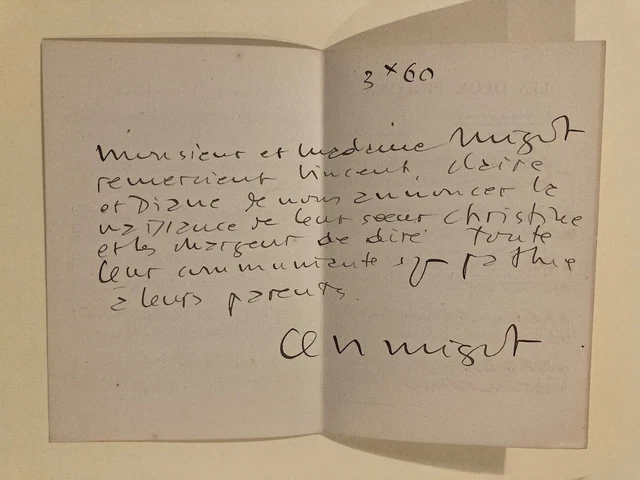 3 X 60
Monsieur et madame Migot
remercient Vincent, Claire
et Diane de nous annoncer la
naissance de leur sœur Christine
et les chargent de dire toute
leur communiante sympathie
à leurs parents.
Migot